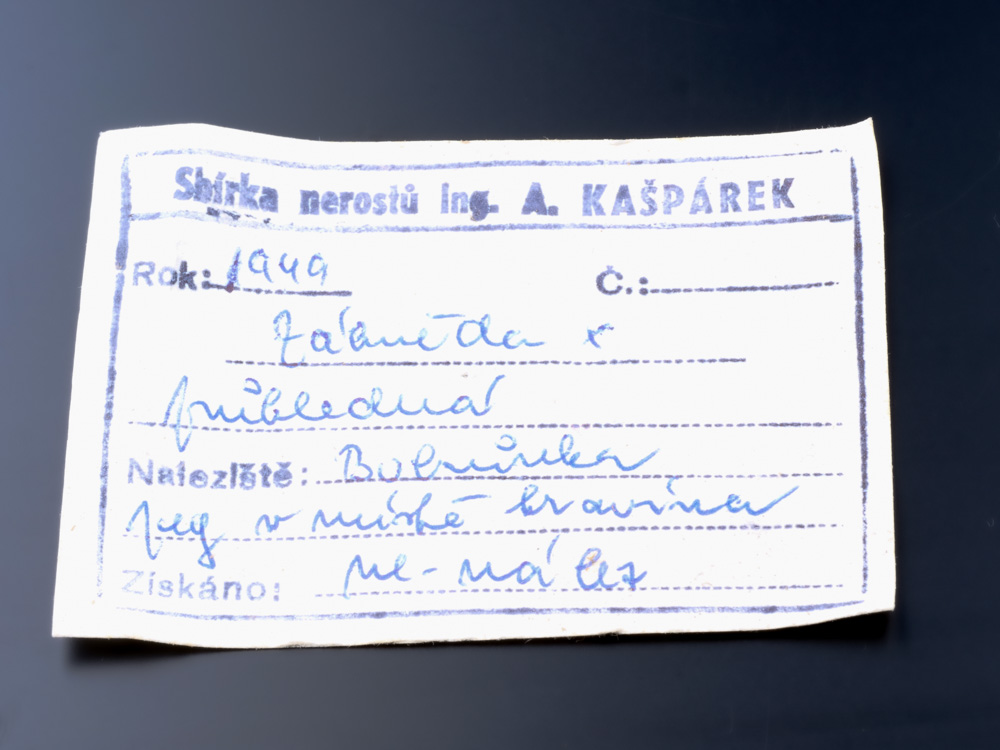 Sbírka nerostů ing. A. KAŠPÁREK
Rok: 1949 Č.:
Záhněda x
průhledná
Naleziště: Bobrůvka
peg v místě kravína
Získáno: nález